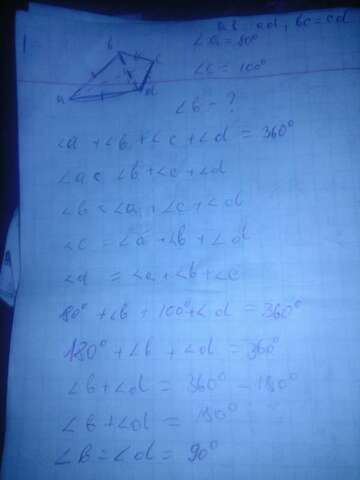 1
ab = ad, bc = cd
∠a = 80°
∠c = 100°
b
c
a
d
∠b - ?
∠a + ∠b + ∠c + ∠d = 360°
∠a < ∠b + ∠c + ∠d
∠b < ∠a + ∠c + ∠d
∠c < ∠a + ∠b + ∠d
∠d < ∠a + ∠b + ∠c
80° + ∠b + 100° + ∠d = 360°
180° + ∠b + ∠d = 360°
∠b + ∠d = 360° - 180°
∠b + ∠d = 180°
∠B = ∠d = 90°